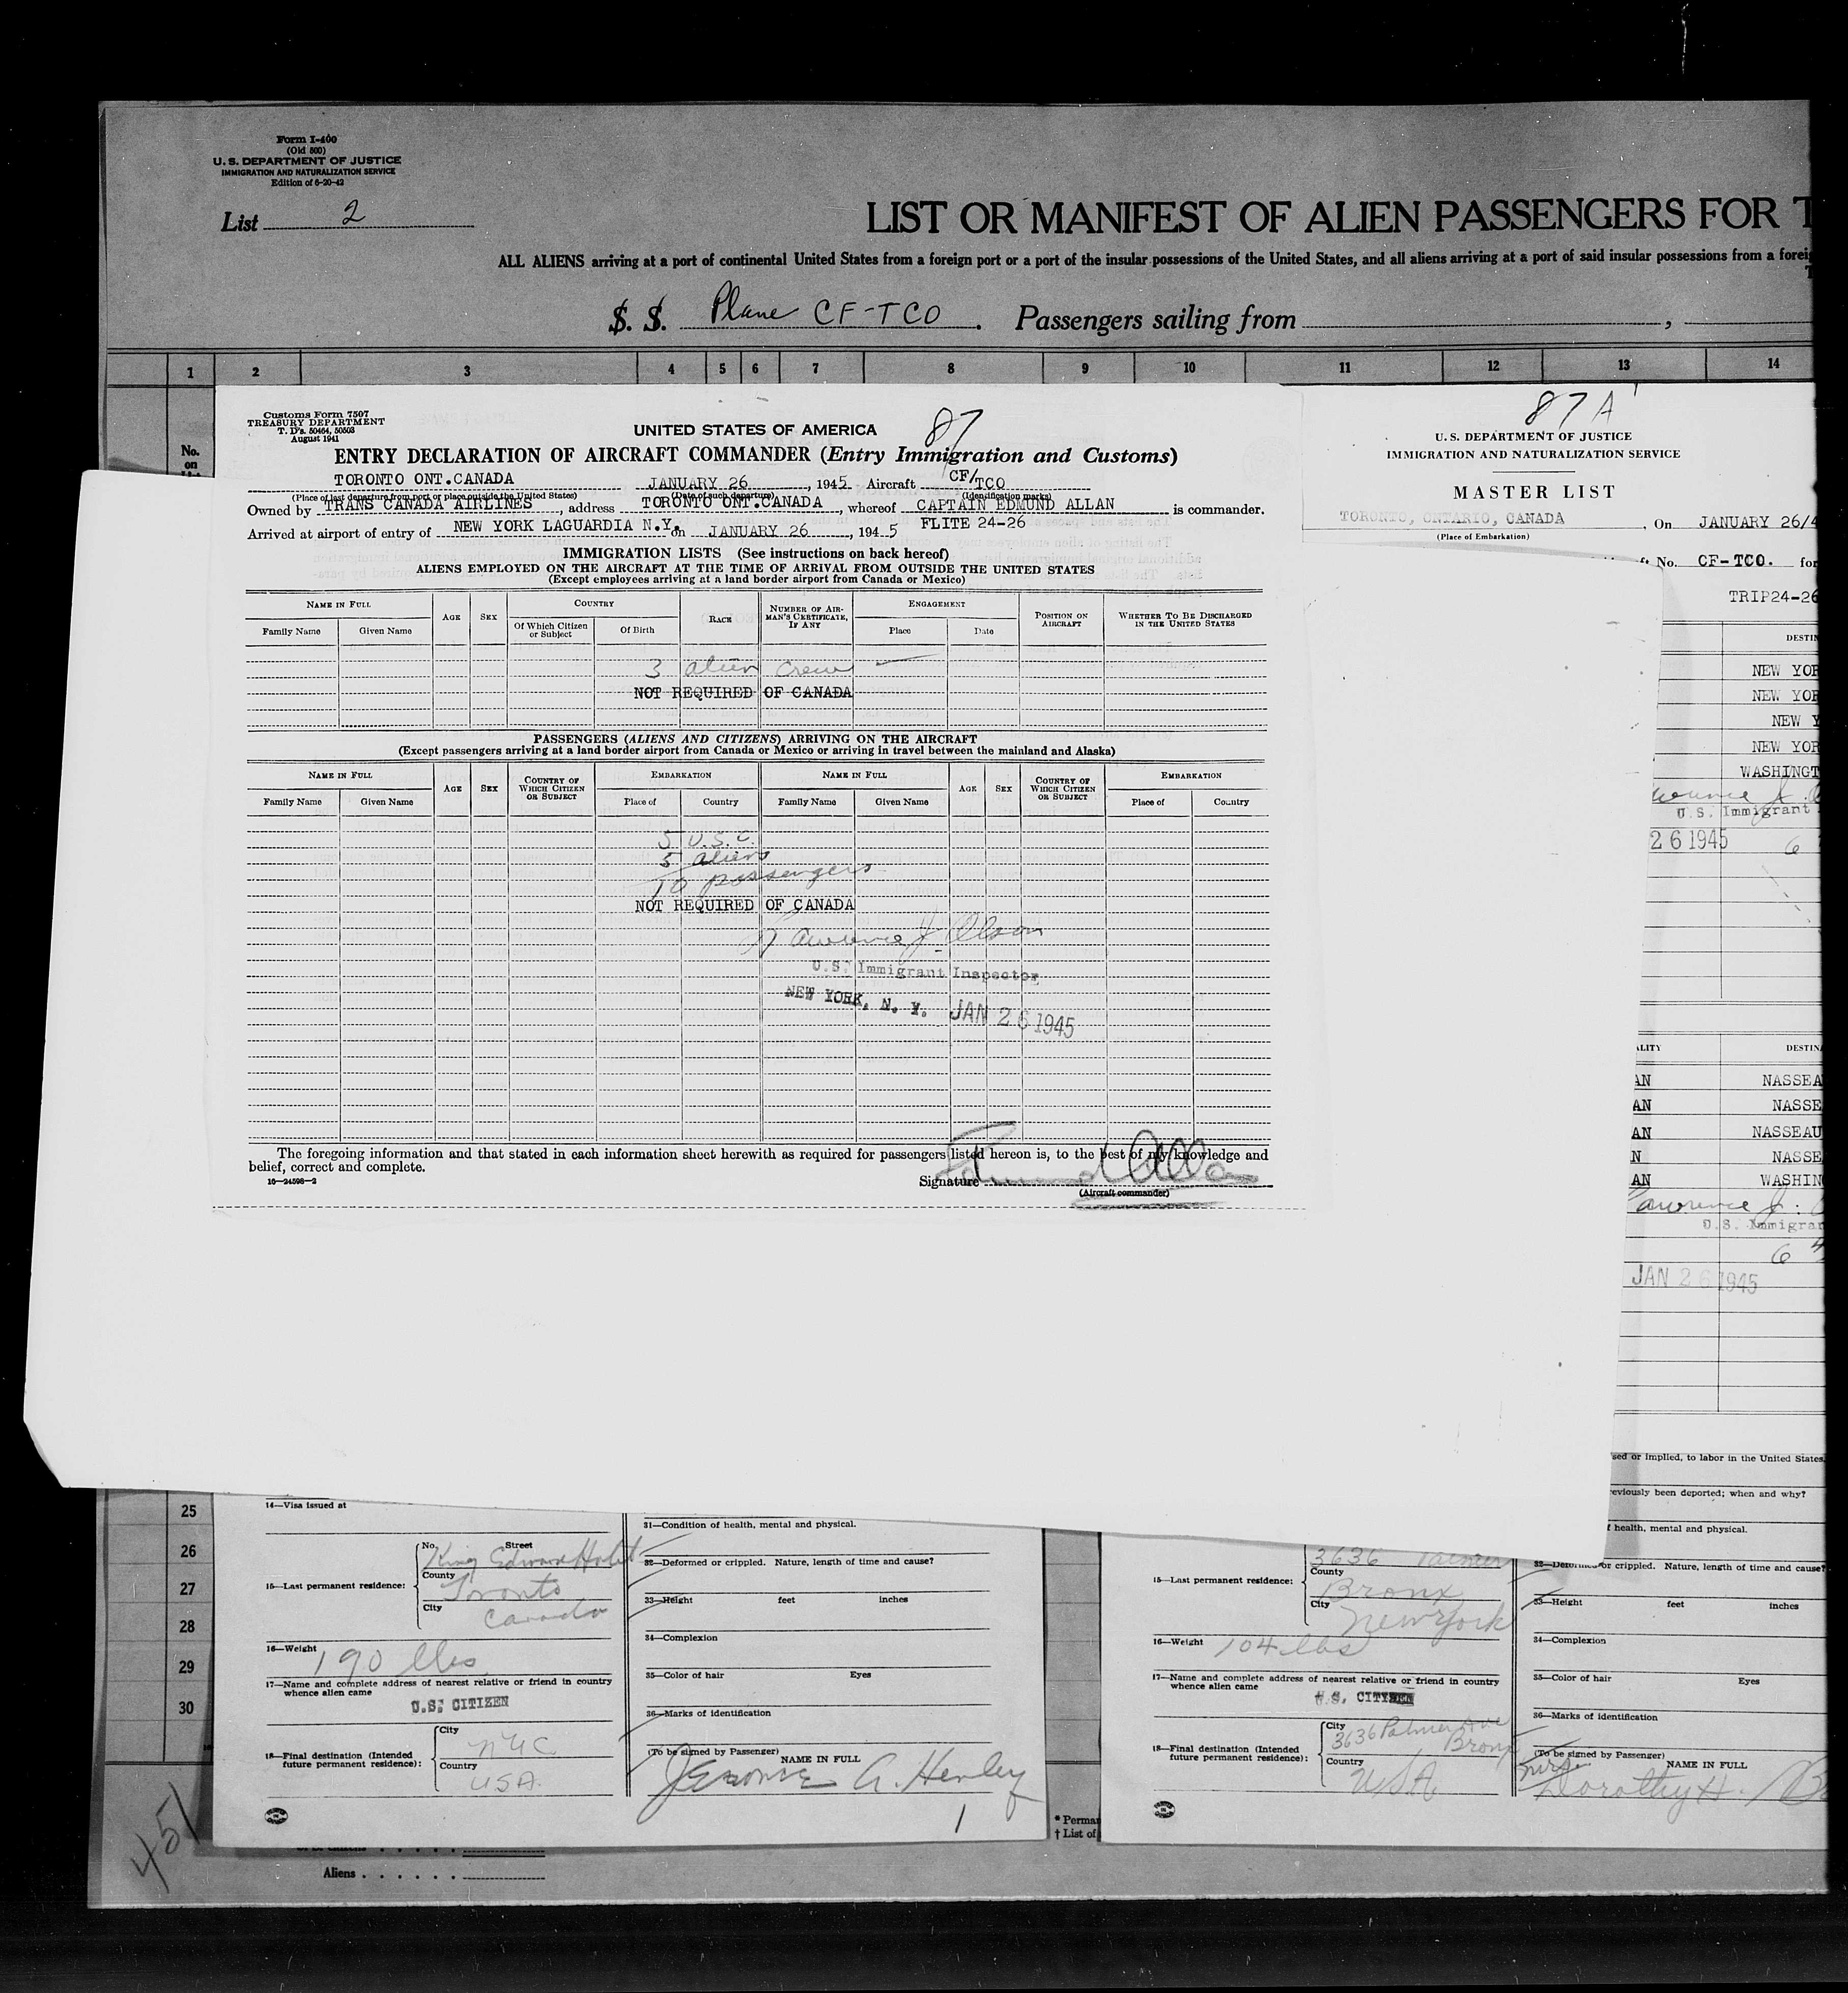 Form I-400
(Old 500)
U. S. DEPARTMENT OF JUSTICE
IMMIGRATION AND NATURALIZATION SERVICE
Edition of 6-20-42
List 2
LIST OR MANIFEST OF ALIEN PASSENGERS FOR T
ALL ALIENS arriving at a port of continental United States from a foreign port or a port of the insular possessions of the United States, and all aliens arriving at a port of said insular possessions from a foreig
S. S. Plane CF-TCO. Passengers sailing from ,
1 2 3 4 5 6 7 8 9 10 11 12 13 14
No.
on
Customs Form 7507
TREASURY DEPARTMENT
T. D's. 50464, 50503
August 1941
UNITED STATES OF AMERICA
87
ENTRY DECLARATION OF AIRCRAFT COMMANDER (Entry Immigration and Customs)
TORONTO ONT.CANADA JANUARY 26, 1945 Aircraft CF/TCO
(Place of last departure from port or place outside the United States) (Date of such departure) (Identification marks)
Owned by TRANS CANADA AIRLINES, address TORONTO ONT.CANADA, whereof CAPTAIN EDMUND ALLAN is commander.
Arrived at airport of entry of NEW YORK LAGUARDIA N.Y. on JANUARY 26, 1945 FLITE 24-26
IMMIGRATION LISTS (See instructions on back hereof)
ALIENS EMPLOYED ON THE AIRCRAFT AT THE TIME OF ARRIVAL FROM OUTSIDE THE UNITED STATES
(Except employees arriving at a land border airport from Canada or Mexico)
NAME IN FULL AGE SEX COUNTRY RACE NUMBER OF AIRMAN'S CERTIFICATE, IF ANY ENGAGEMENT POSITION ON AIRCRAFT WHETHER TO BE DISCHARGED IN THE UNITED STATES
Family Name Given Name Of Which Citizen or Subject Of Birth Place Date
3 alien crew
NOT REQUIRED OF CANADA
PASSENGERS (ALIENS AND CITIZENS) ARRIVING ON THE AIRCRAFT
(Except passengers arriving at a land border airport from Canada or Mexico or arriving in travel between the mainland and Alaska)
NAME IN FULL AGE SEX COUNTRY OF WHICH CITIZEN OR SUBJECT EMBARKATION NAME IN FULL AGE SEX COUNTRY OF WHICH CITIZEN OR SUBJECT EMBARKATION
Family Name Given Name Place of Country Family Name Given Name Place of Country
5 U.S.C.
5 aliens
10 passengers
NOT REQUIRED OF CANADA
Lawrence J. Olson
U.S. Immigrant Inspector
NEW YORK, N. Y. JAN 26 1945
The foregoing information and that stated in each information sheet herewith as required for passengers listed hereon is, to the best of my knowledge and
belief, correct and complete.
16—24598-2
Signature Edmund Allan
(Aircraft commander)
87 A
U. S. DEPARTMENT OF JUSTICE
IMMIGRATION AND NATURALIZATION SERVICE
MASTER LIST
TORONTO, ONTARIO, CANADA, On JANUARY 26/4
(Place of Embarkation)
No. CF-TCO. for
TRIP24-26
DESTIN
NEW YOR
NEW YOR
NEW Y
NEW YOR
WASHINGT
U.S. Immigrant
26 1945 6
ALITY DESTIN
AN NASSEA
AN NASSE
AN NASSEAU
N NASSE
AN WASHIN
awrence J.
U.S. Immigran
6 4
JAN 26 1945
sed or implied, to labor in the United States
eviously been deported; when and why?
f health, mental and physical.
25
26
27
28
29
30
14—Visa issued at
15—Last permanent residence:
No. Street
King Edward Hotel
County
Toronto
City
Canada
16—Weight 190 lbs
17—Name and complete address of nearest relative or friend in country
whence alien came
U.S. CITIZEN
18—Final destination (Intended
future permanent residence):
City
NYC
Country
USA.
31—Condition of health, mental and physical.
32—Deformed or crippled. Nature, length of time and cause?
33—Height feet inches
34—Complexion
35—Color of hair Eyes
36—Marks of identification
(To be signed by Passenger)
NAME IN FULL
Jerome A. Henley
1
3636 Palmer
15—Last permanent residence:
County
Bronx
City
New York
16—Weight 104 lbs
17—Name and complete address of nearest relative or friend in country
whence alien came
U.S. CITIZEN
18—Final destination (Intended
future permanent residence):
City
3636 Palmer Ave
Bronx
Country
USA
32—Deformed or crippled. Nature, length of time and cause?
33—Height feet inches
34—Complexion
35—Color of hair Eyes
36—Marks of identification
(To be signed by Passenger)
NAME IN FULL
Mrs. Dorothy H. B
* Perman
† List of
451
Aliens